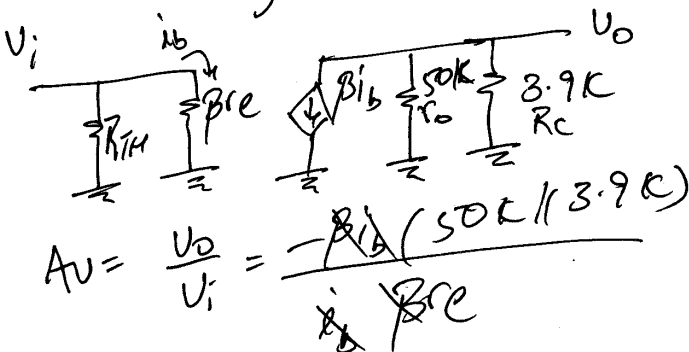 Vi ib Vo
RTH βre βib 50K ro 3.9K Rc
Av = Vo/Vi = -βib (50K || 3.9K) / ib βre